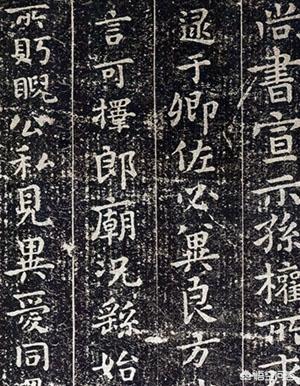 尚書宣示孫權所
逮于卿佐必冀良方
言可擇郎廟況繇始
所盰睨公私見異愛同
悟空问答